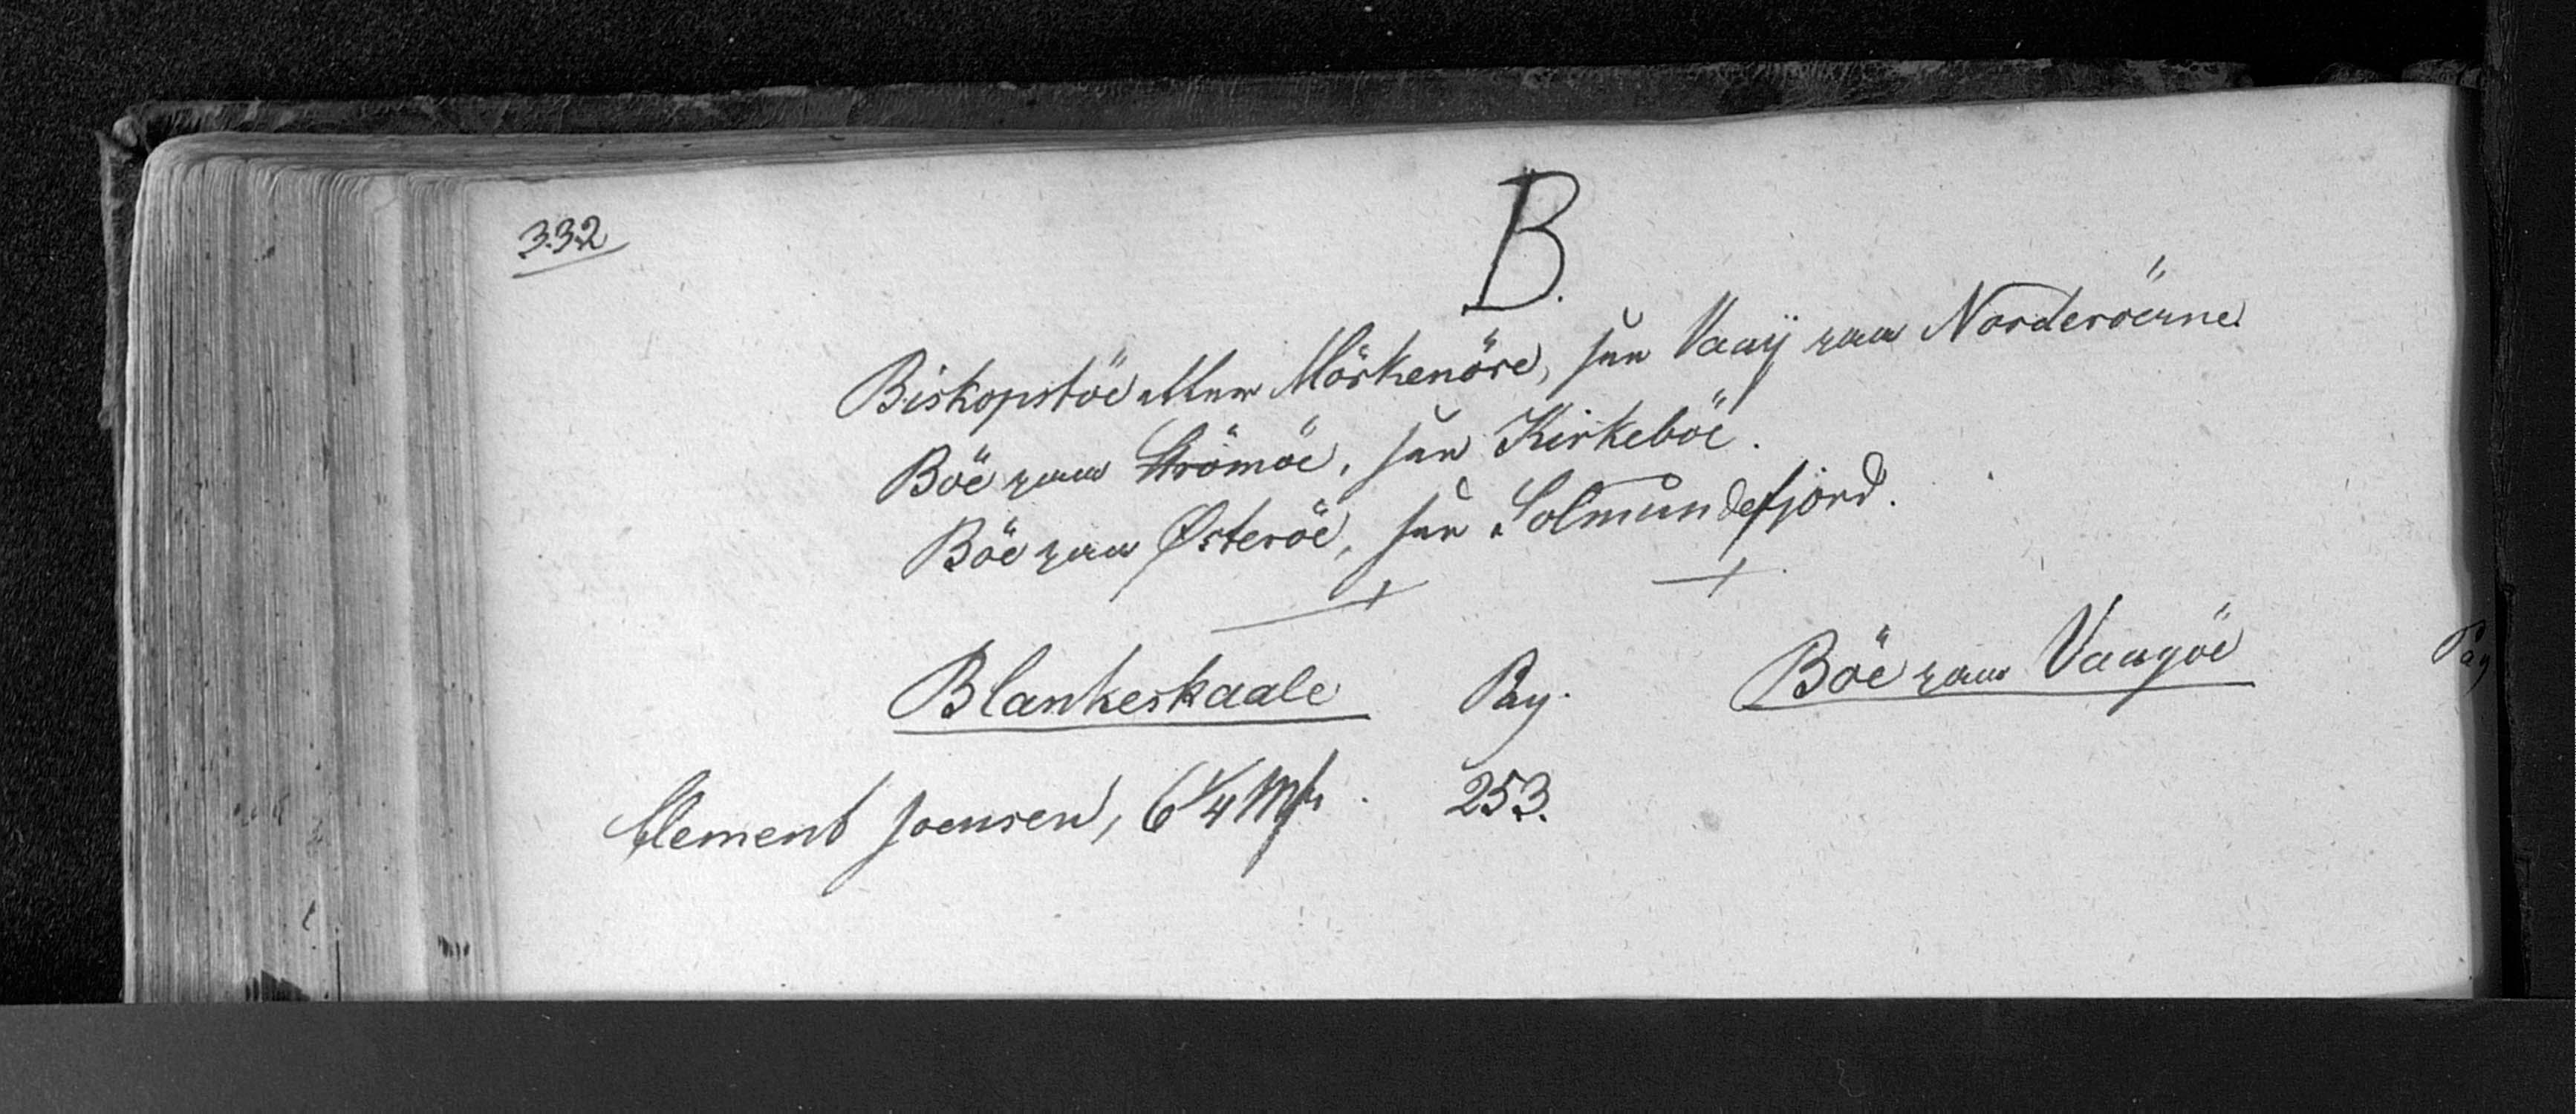 332
B.
Biskopstöe eller Mörkenöre, see Vaay paa Norderöerne
Böe paa Strömöe, see Kirkeböe.
Böe paa Österöe, see Solmundefjord.
Blankeskaale Pag. Böe paa Vaagöe Pag
Clement Joensen, 6 1/4 Mk. 253.